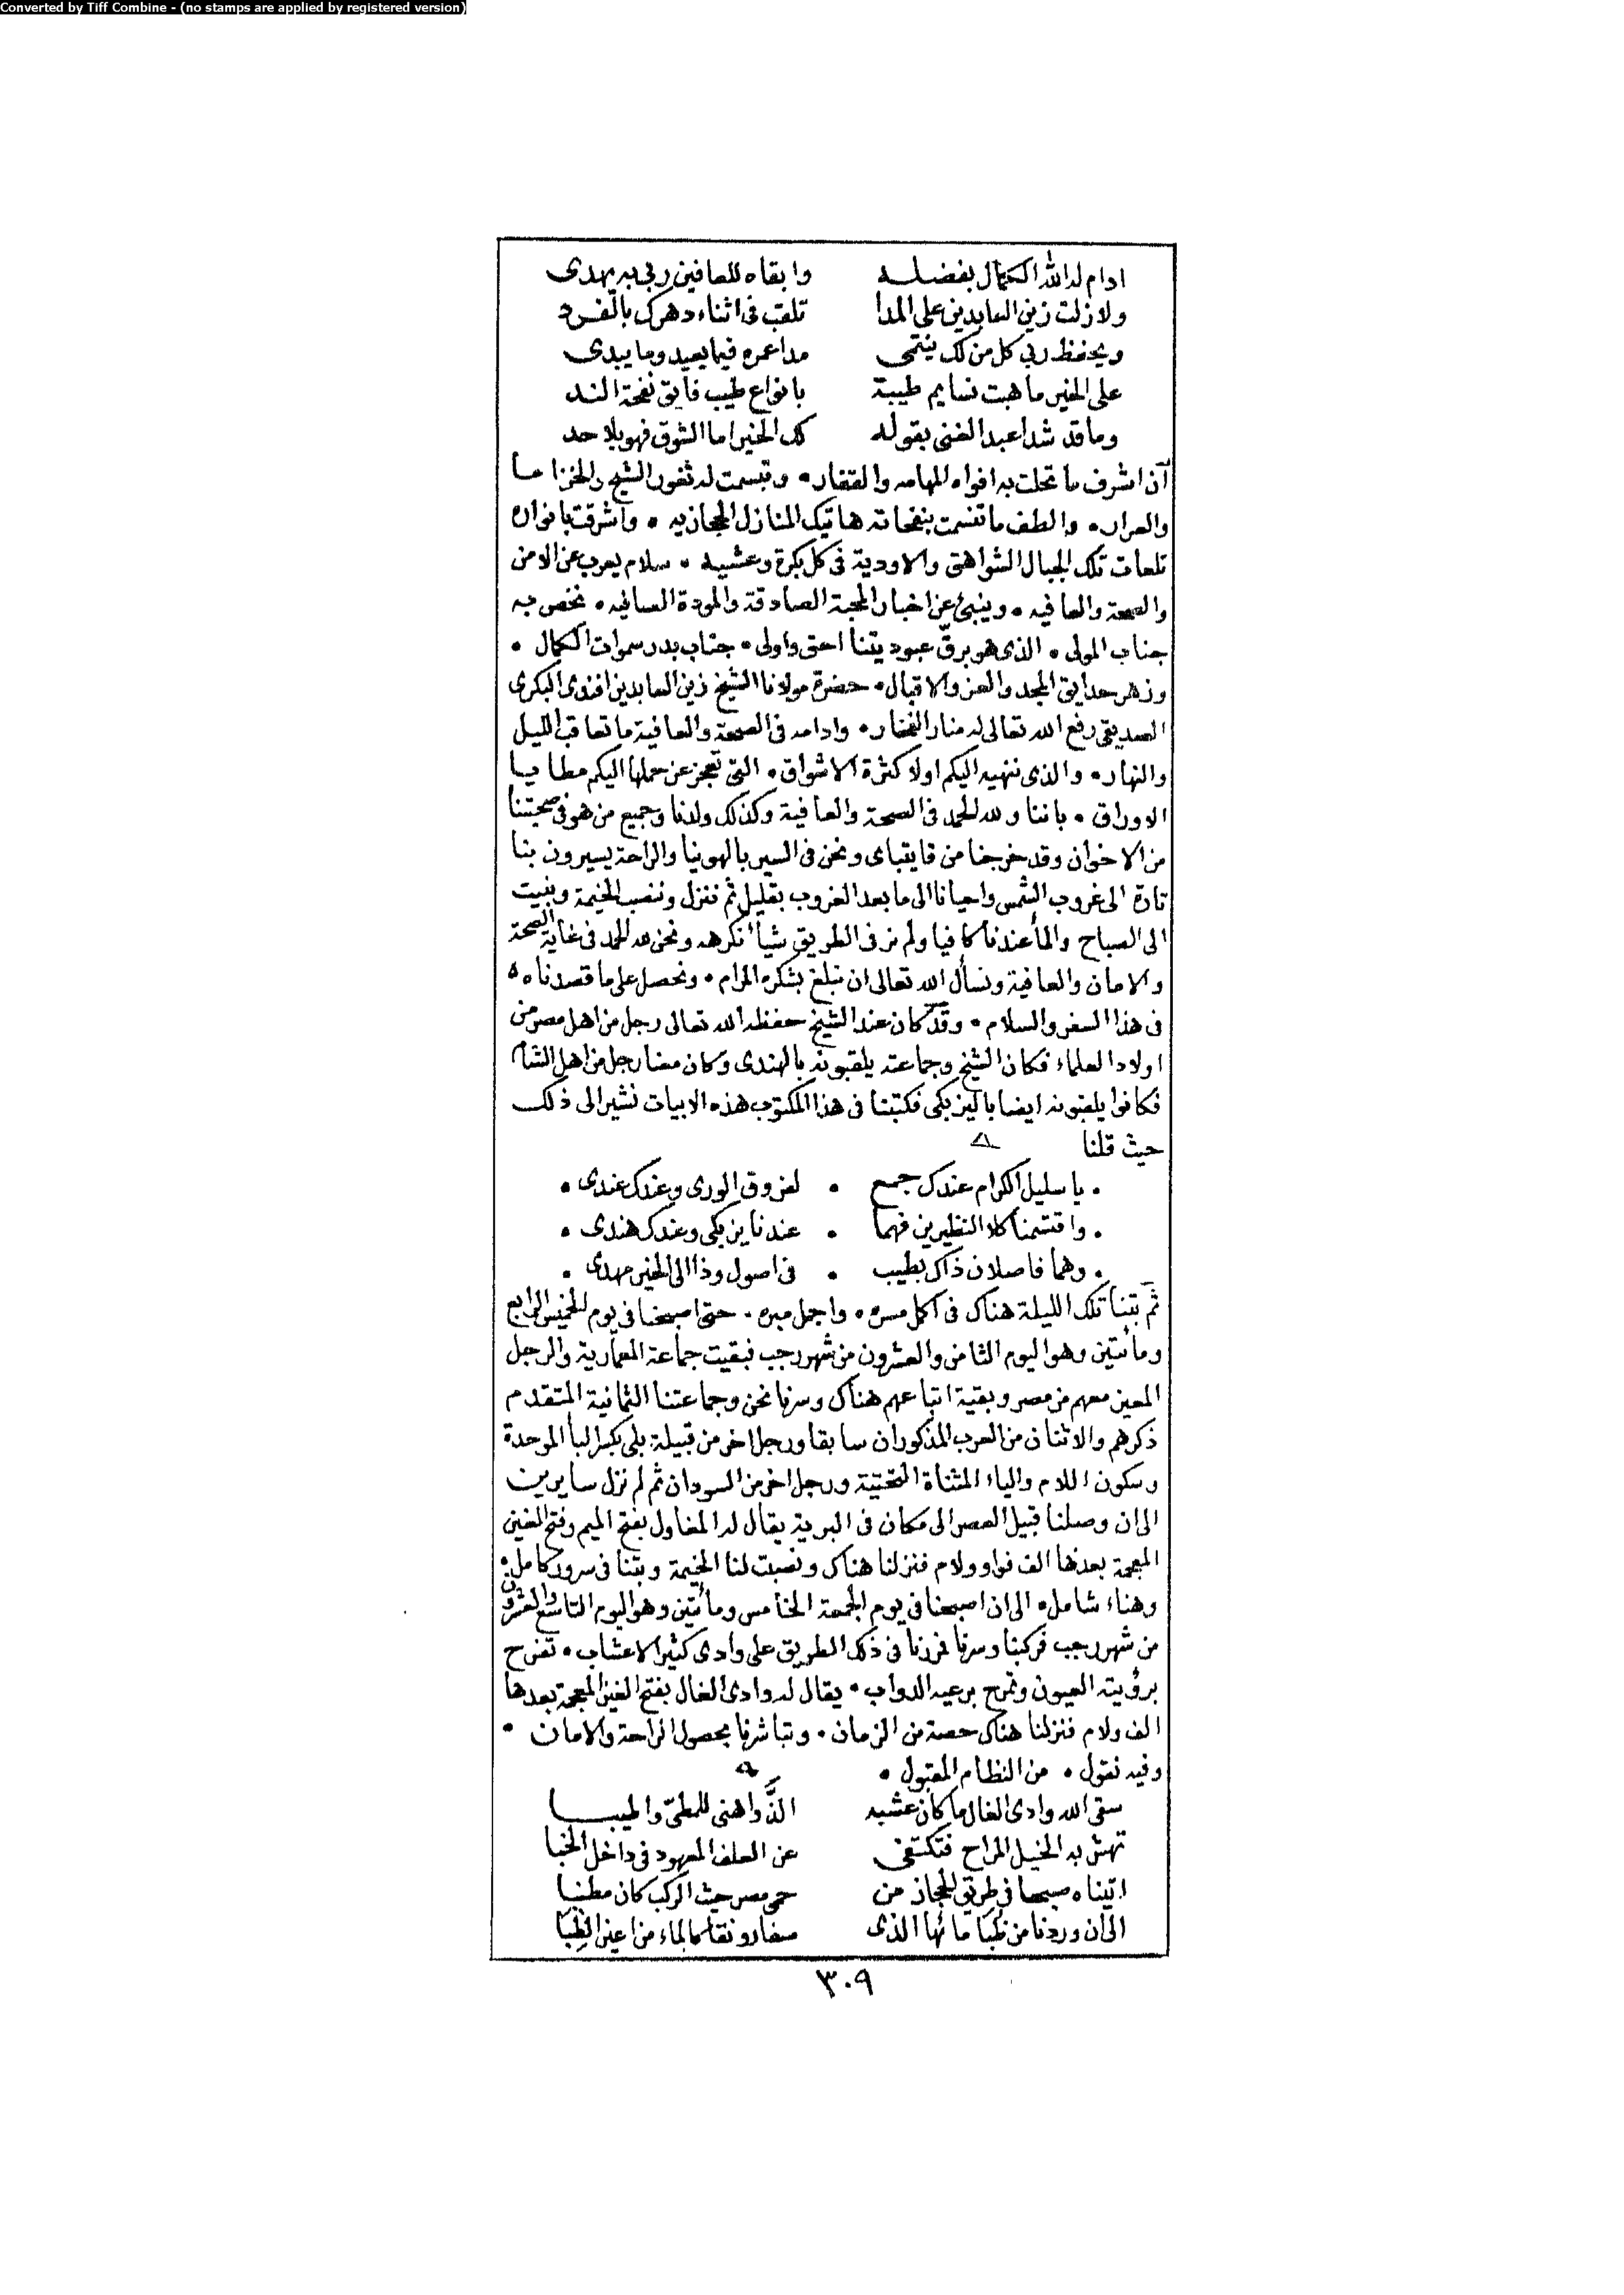 Converted by Tiff Combine - (no stamps are applied by registered version)
ادام له الله الكمال بفضله وابقاه للعافين ربي به يهدى
ولا زلت زين العابدين على المدا تلقب فى اثناء دهرك بالفرد
ويحفظ ربي كل من لك ينتمى مدا عمره فيما يعيد وما يبدى
على الخير ما هبت نسايم طيبة بانواع طيب فايق نفحة الند
وما قد شدا عبد الغنى بقوله لك الخير اما الشوق فهو بلا حد
آن اشرف ما تحلت به افواه المهامه والقفار • وتبسمت له ثغور الشيح والخزاما
والعرار • والطف ما تنسمت بنفحاته هاتيك المنازل الحجازيه • واشرقت بانواره
تلعات تلك الجبال الشواهق والاودية فى كل بكرة وعشيه • سلام يعرب عن الامن
والصحة والعافيه • وينبئ عن اخبار المحبة الصادقة والمودة الصافيه • نخص به
جناب المولى • الذى هو برقّ عبوديتنا احق واولى • جناب بدر سموات الكمال •
وزهر حدايق المجد والعز والاقبال • حضرة مولانا الشيخ زين العابدين افندى البكرى
الصديقى رفع الله تعالى له منار الفخار • وادامه فى الصحة والعافية ما تعاقب الليل
والنهار • والذى ننهيه اليكم اولا كثرة الاشواق • التى تعجز عن حملها اليكم مطايا
الاوراق • باننا ولله الحمد فى الصحة والعافية وكذلك ولدنا وجميع من هو فى صحبتنا
من الاخوان وقد خرجنا من قايتباى ونحن فى السير بالهوينا والراحة يسيرون بنا
تارة الى غروب الشمس واحيانا الى ما بعد الغروب بقليل ثم ننزل وننصب الخيمة ونبيت
الى الصباح والمأ عندنا كافيا ولم نر فى الطريق شيأ نكرهه ونحن لله الحمد فى غاية الصحة
والامان والعافية ونسأل الله تعالى ان نبلغ بشكره المرام • ونحصل على ما قصدناه •
فى هذا السفر والسلام • وقد كان عند الشيخ حفظه الله تعالى رجل من اهل مصر من
اولاد العلماء فكان الشيخ وجماعته يلقبونه بالهندى وكان معنا رجل من اهل الشام
فكانوا يلقبونه ايضا باليزبكى فكتبنا فى هذا المكتوب هذه الابيات نشير الى ذلك
حيث قلنا
• يا سليل الكرام عندك جمع • لفروق الورى وعندك عندى •
• واقتسمنا كلا النظيرين فهما • عندنا يزبكى وعندك هندى •
• وهما فاصلان ذاك بطيب • فى اصول وذا الى الخير مهدى •
ثم بتنا تلك الليلة هناك فى اكمل مسره • واجمل مبره • حتى اصبحنا فى يوم الخميس الرابع
ومائتين وهو اليوم الثامن والعشرون من شهر رجب فبقيت جماعة المعمارية والرجل
المعين معهم من مصر وبقية اتباعهم هناك وسرنا نحن وجماعتنا الثمانية المتقدم
ذكرهم والاثنان من العرب المذكوران سابقا ورجل اخر من قبيلة بلى بكسر البا الموحدة
وسكون اللام والياء المثناة التحتية ورجل اخر من السودان ثم لم نزل سايرين
الى ان وصلنا قبيل العصر الى مكان فى البرية يقال له المغاول بفتح الميم وفتح الغين
المعجمة بعدها الف فواو ولام فنزلنا هناك ونصبت لنا الخيمة وبتنا فى سرور كامل •
وهناء شامل • الى ان اصبحنا فى يوم الجمعة الخامس ومأتين وهو اليوم التاسع والعشرون
من شهر رجب فركبنا وسرنا فمررنا فى ذلك الطريق على وادى كثير الاعشاب • تفرح
برؤيته العيون وتمرح برعيه الدواب • يقال له وادى الغال بفتح الغين المعجمة بعدها
الف ولام فنزلنا هناك حصة من الزمان • وتباشرنا بحصول الراحة والامان •
وفيه نقول • من النظام المقبول •
سقى الله وادى الغال ما كان عشبه الذّ واهنى للمطىّ واطيبا
تهش به الخيل المراح فتكتفى عن العلف المعهود فى داخل الخبا
اتيناه صبحا فى طريق الحجاز من حمى مصر حيث الركب كان مطنبا
الى ان وردنا من ظبا مائها الذى صفا رونقا كالماء من اعين الظبا
٣٠٩